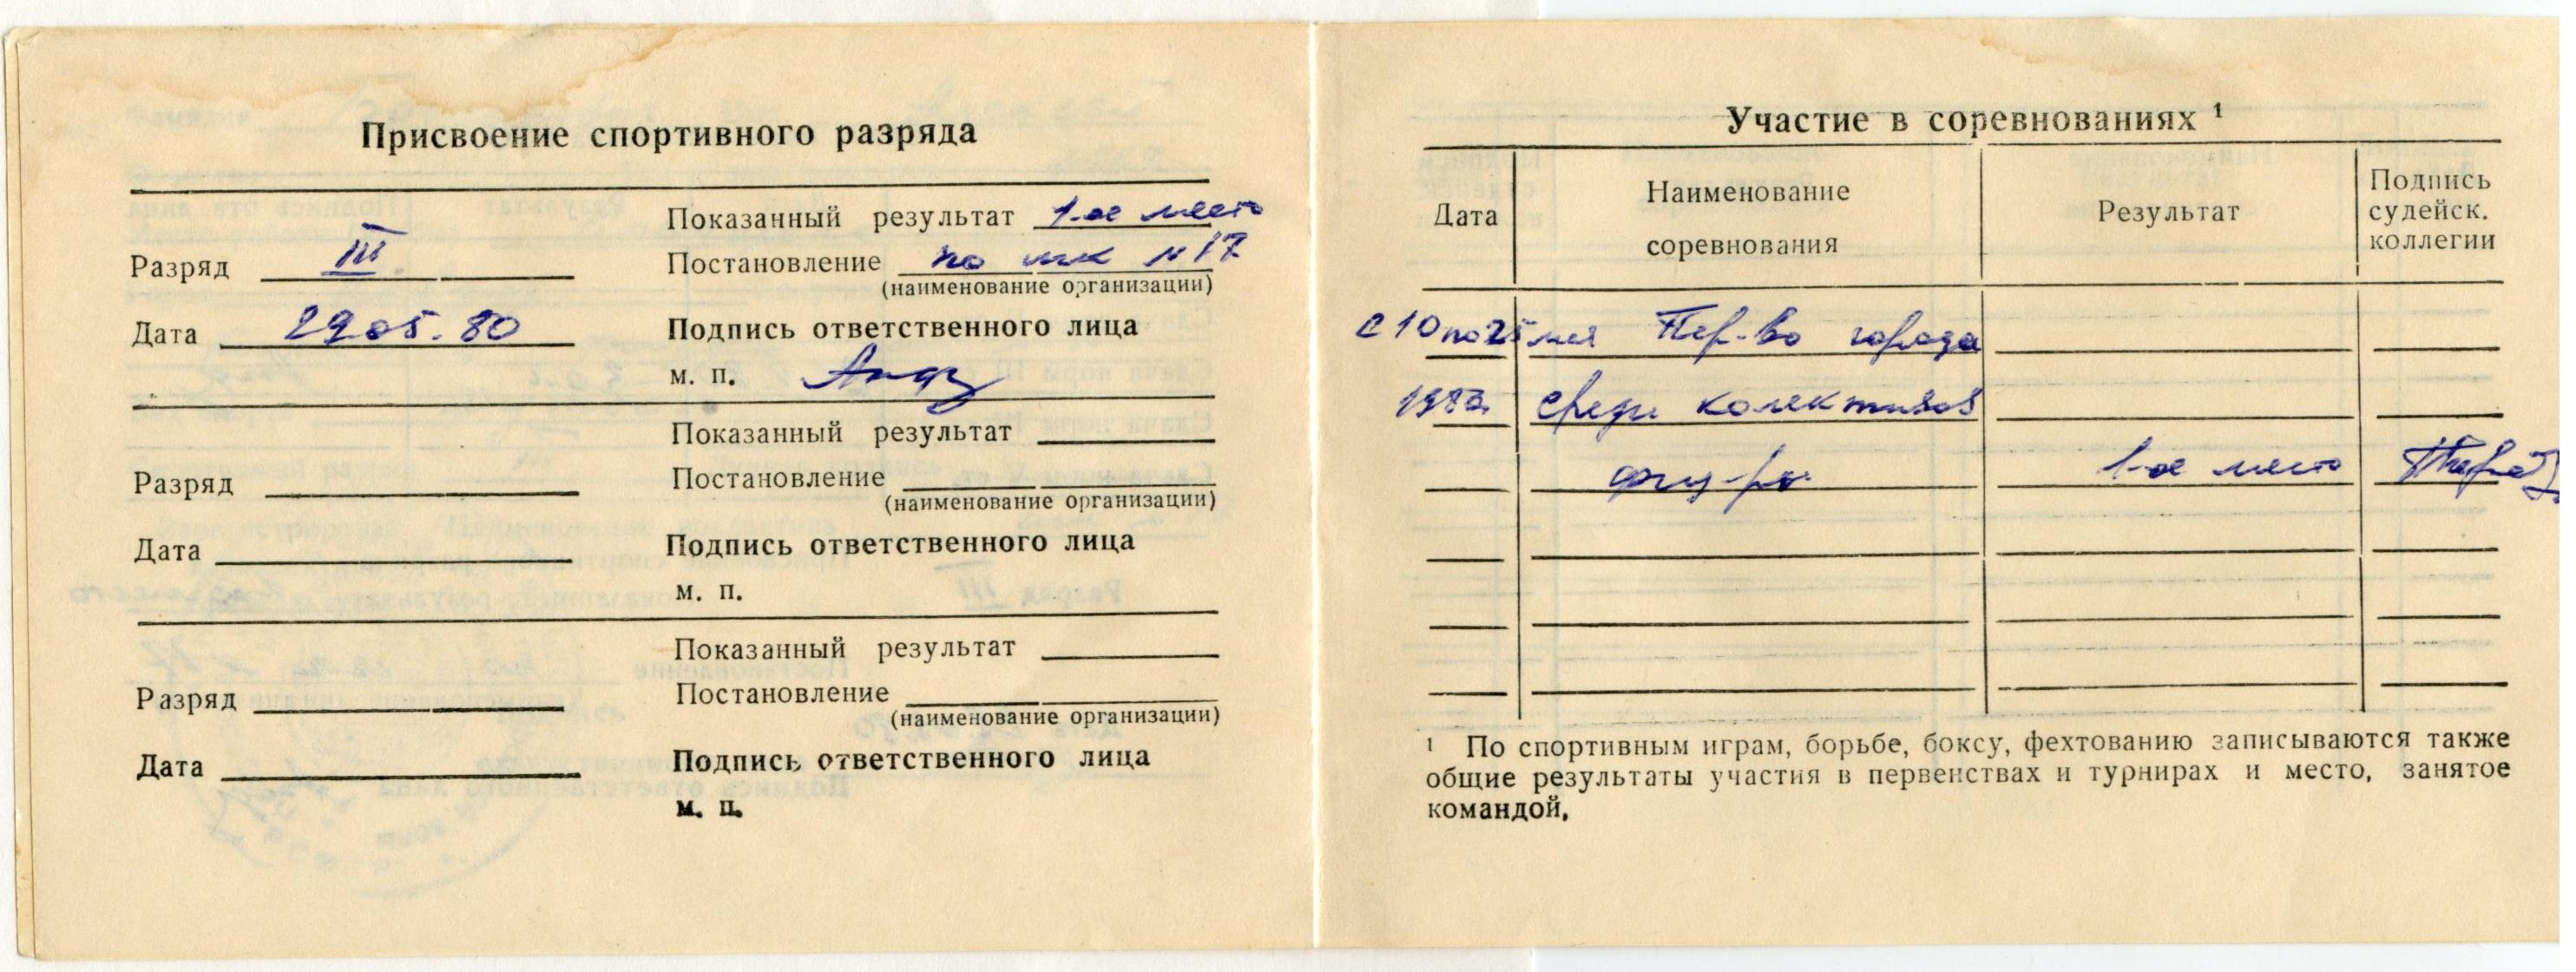 Присвоение спортивного разряда
Показанный результат 1-ое место
Разряд III
Постановление по шк N 17
(наименование организации)
Дата 29.05.80
Подпись ответственного лица
м. п.
Показанный результат
Разряд
Постановление
(наименование организации)
Дата
Подпись ответственного лица
м. п.
Показанный результат
Разряд
Постановление
(наименование организации)
Дата
Подпись ответственного лица
м. п.
Участие в соревнованиях 1
Дата
Наименование соревнования
Результат
Подпись судейск. коллегии
с 10 по 25 мая Пер-во города
1980 среди колективов
физ-ры 1-ое место
1 По спортивным играм, борьбе, боксу, фехтованию записываются также
общие результаты участия в первенствах и турнирах и место, занятое
командой.